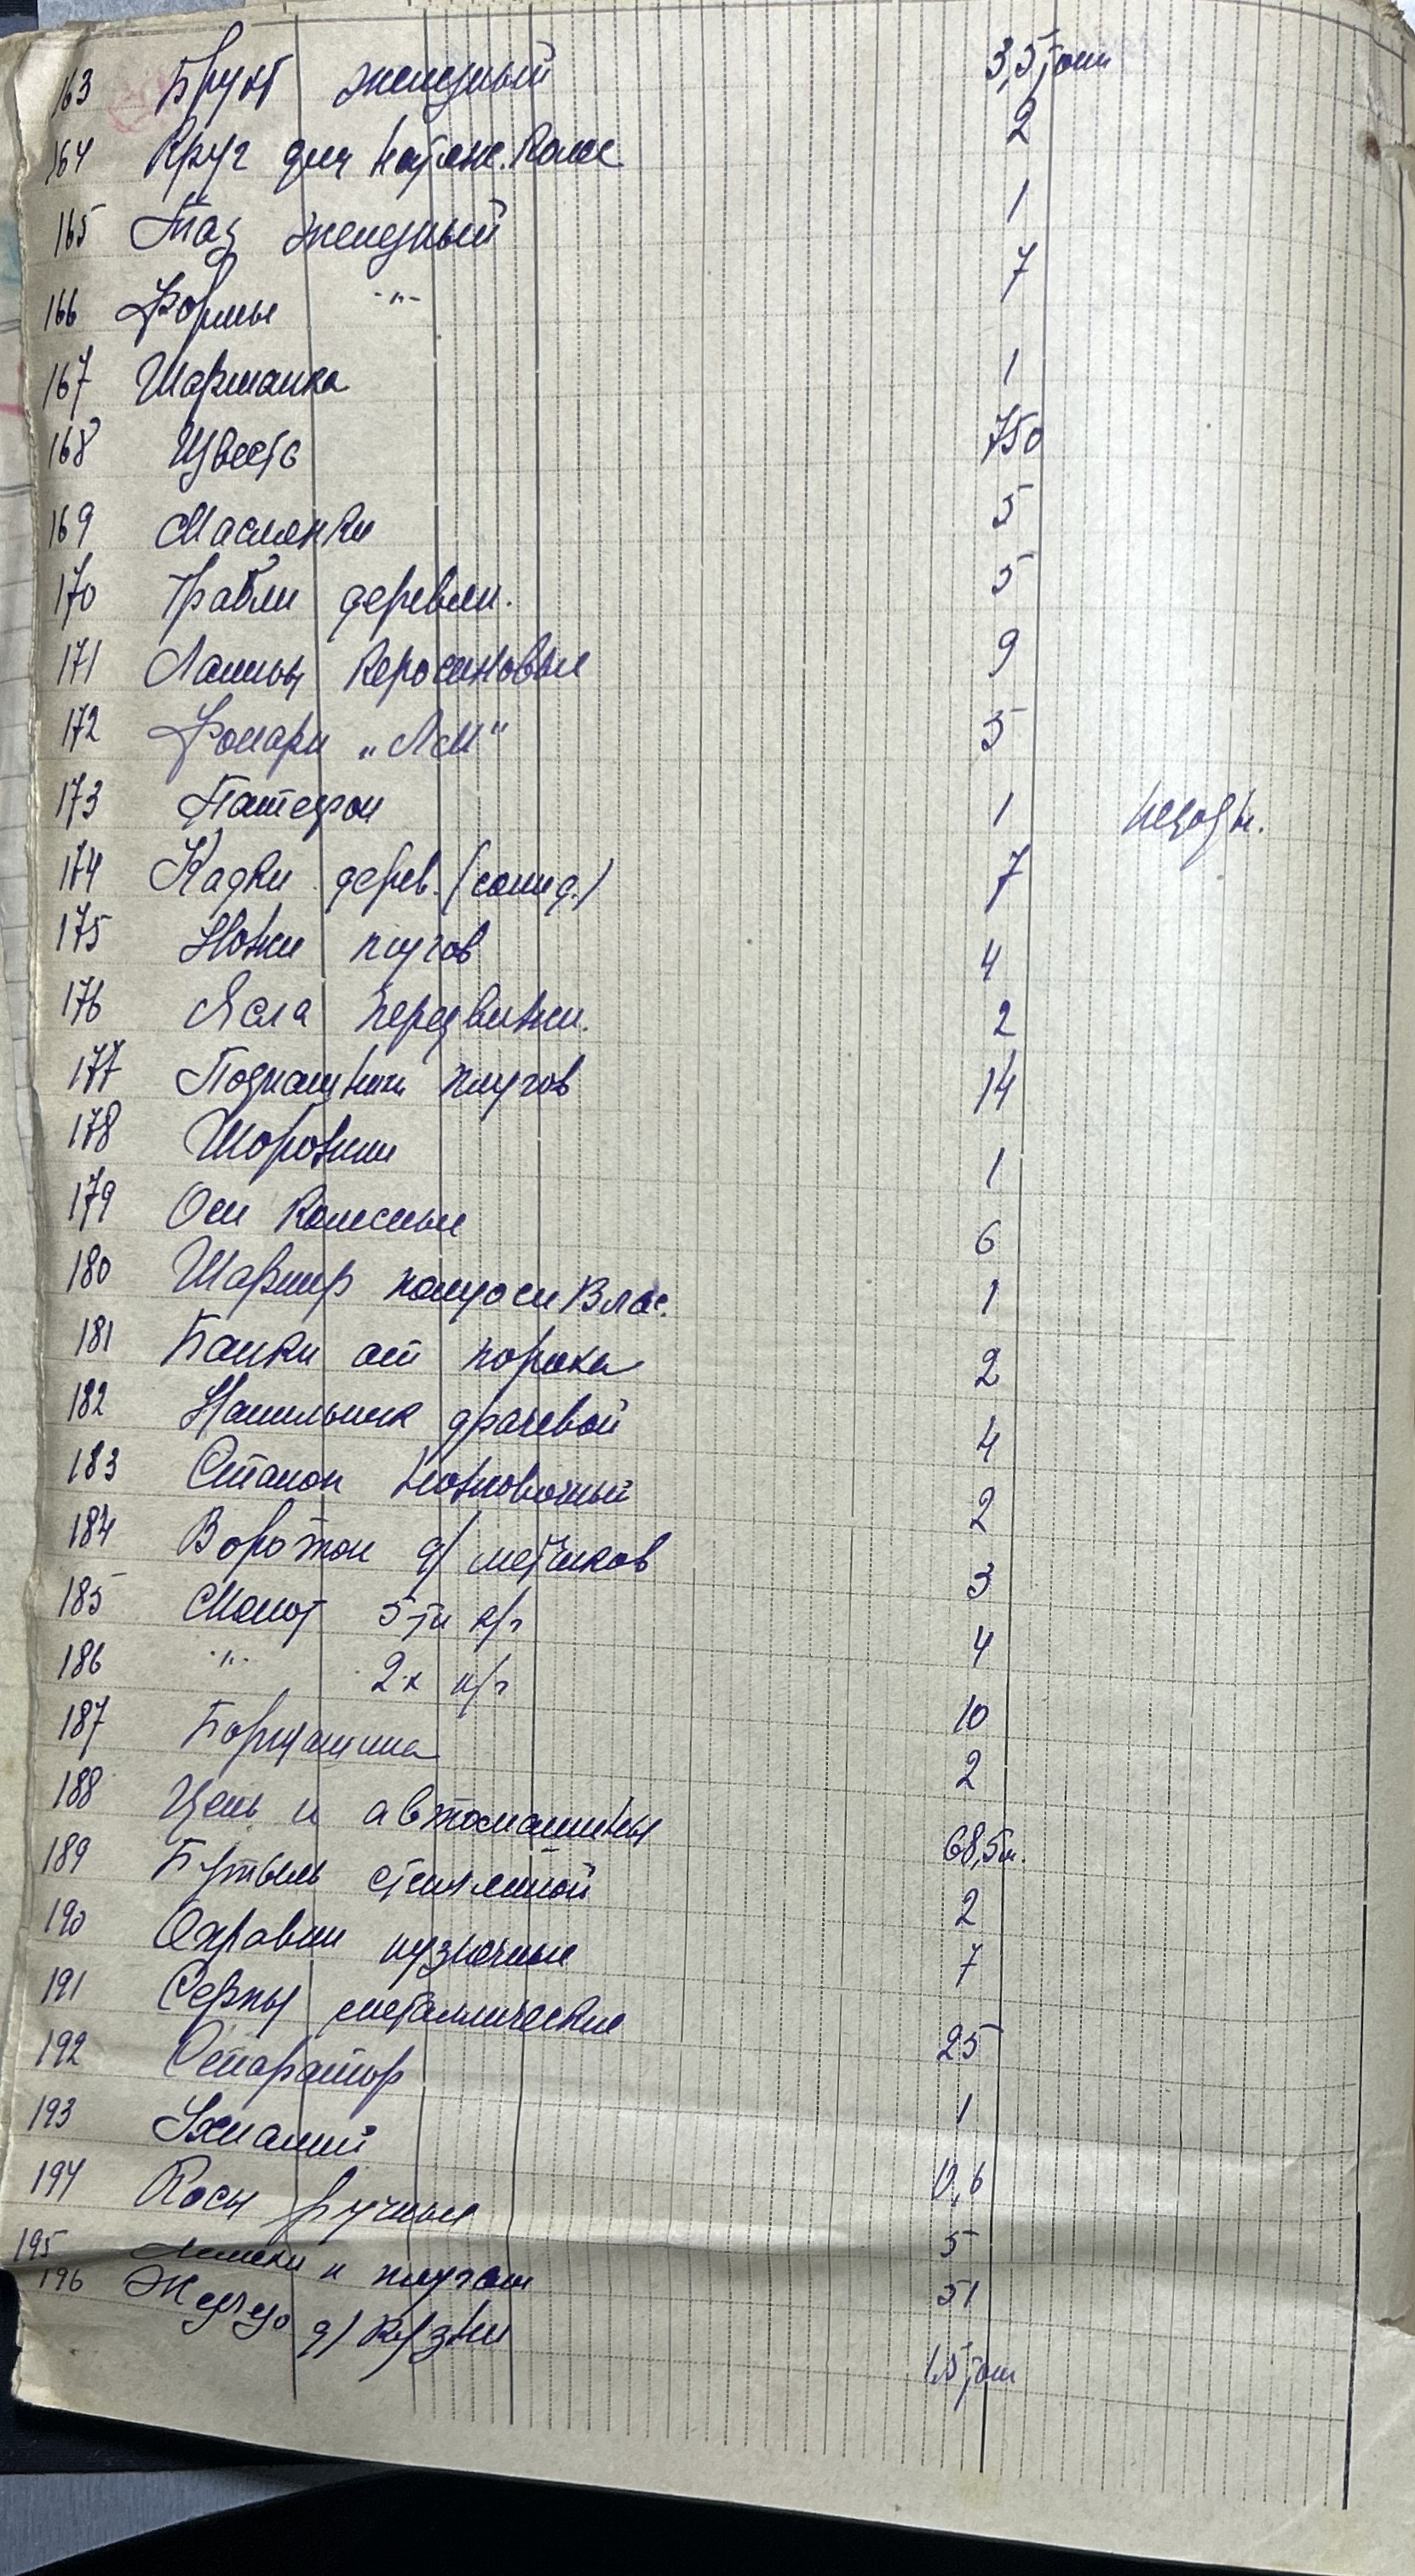 163 Брухт железный 3,5 тонн
164 Круг для натяж. колес 2
165 Таз железный 1
166 Формы -"- 7
167 Шарманка 1
168 Известь 750
169 Масленки 5
170 Грабли деревян. 5
171 Лампы керосиновые 9
172 Фонари „ЛМ" 5
173 Патефон 1 негодн.
174 Кадки дерев. (солид.) 7
175 Ножи плугов 4
176 Ясла передвижн. 2
177 плугов 14
178 1
179 Оси колесные 6
180 Шарнир полуоси 1
181 Банки от пороха 2
182 Напильник драчевой 4
183 Станок ножовочный 2
184 Вороток д/ метчиков 3
185 Молот 5ти к/г 4
186 -"- 2х к/г 10
187 Бормашина 2
188 Цепь к автомашины 68,5м.
189 Бутыль стеклянной 2
190 кузнечные 7
191 Серпы металлические 25
192 Сепаратор 1
193 0,6
194 Косы ручные 5
195 Лемехи к плугам 51
196 Железо д/ кузни 1,5 тон